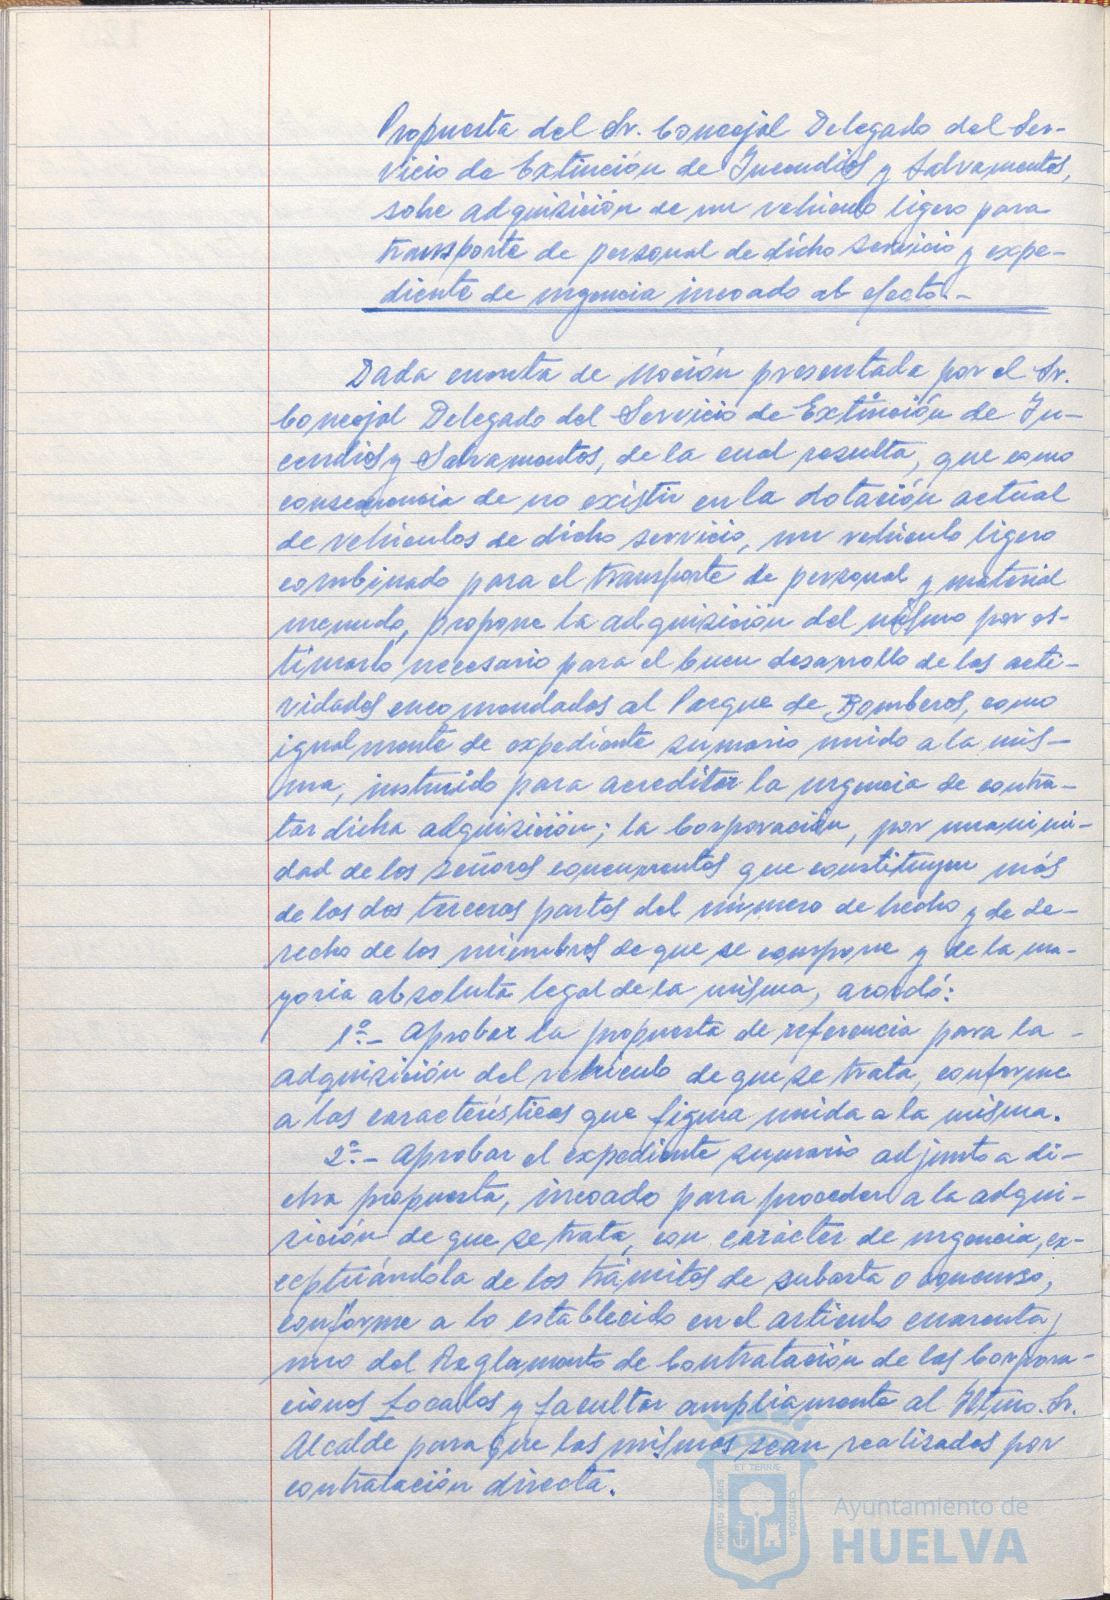 Propuesta del Sr. Concejal Delegado del Ser-
vicio de Extinción de Incendios y Salvamentos,
sobre adquisición de un vehículo ligero para
transporte de personal de dicho servicio y expe-
diente de urgencia incoado al efecto.-
Dada cuenta de moción presentada por el Sr.
Concejal Delegado del Servicio de Extinción de In-
cendios y Salvamentos, de la cual resulta, que como
consecuencia de no existir en la dotación actual
de vehículos de dicho servicio, un vehículo ligero
combinado para el transporte de personal y material
menudo, propone la adquisición del mismo por es-
timarlo necesario para el buen desarrollo de las acti-
vidades encomendadas al Parque de Bomberos, como
igualmente de expediente sumario unido a la mis-
ma, instruido para acreditar la urgencia de contra-
tar dicha adquisición; la Corporación, por unanimi-
dad de los señores concurrentes que constituyen más
de las dos terceras partes del número de hecho y de de-
recho de los miembros de que se compone y de la ma-
yoria absoluta legal de la misma, acordó:
1º.- Aprobar la propuesta de referencia para la
adquisición del vehículo de que se trata, conforme
a las características que figura unida a la misma.
2º.- Aprobar el expediente sumario adjunto a di-
cha propuesta, incoado para proceder a la adqui-
sición de que se trata, con carácter de urgencia, ex-
ceptuándola de los trámites de subasta o concurso,
conforme a lo establecido en el artículo cuarenta y
uno del Reglamento de Contratación de las Corpora-
ciones Locales y facultar ampliamente al Iltmo. Sr.
Alcalde para que las mismas sean realizadas por
contratación directa.
ET TERRÆ
PORTUS MARIS
CUSTODIA
Ayuntamiento de
HUELVA